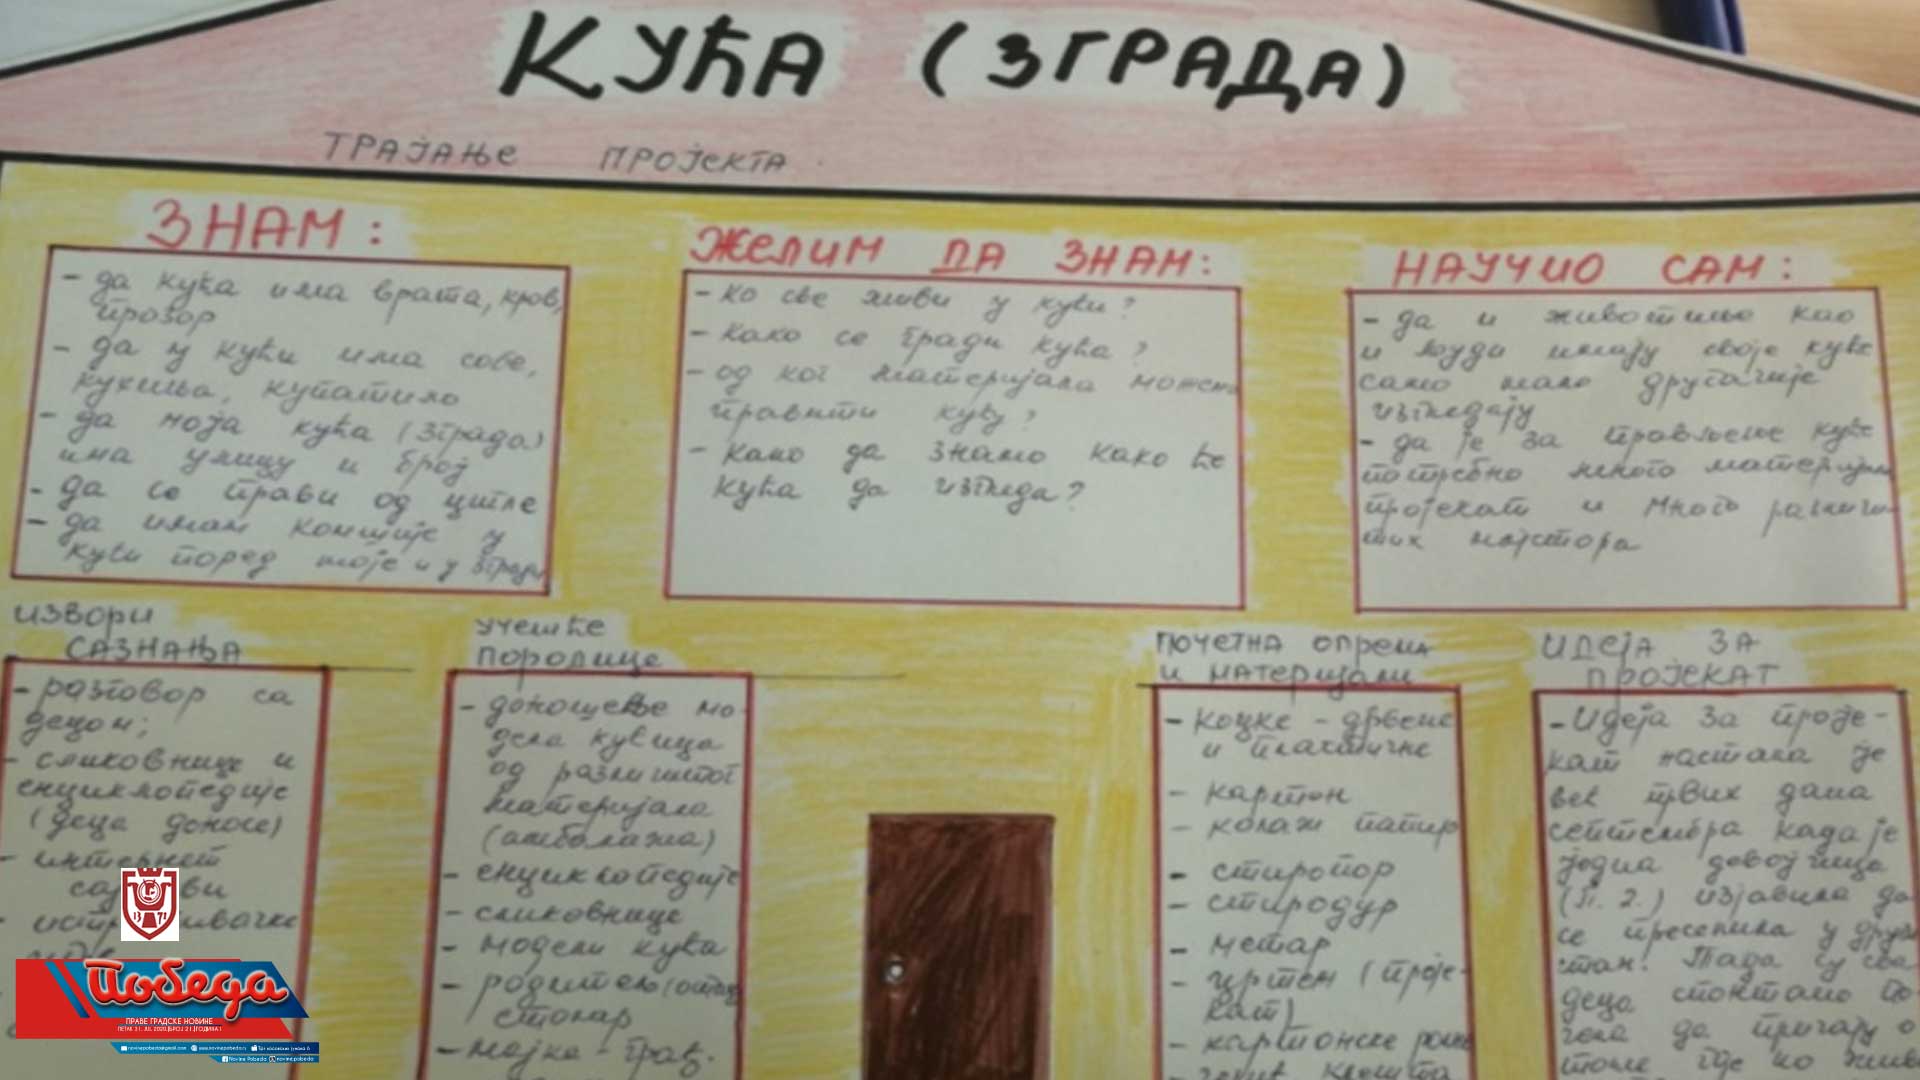 КУЋА (ЗГРАДА)
ТРАЈАЊЕ ПРОЈЕКТА
ЗНАМ:
- да кућа има врата, кров,
прозор
- да у кући има собе,
кухиња, купатило
- да моја кућа (зграда)
има улицу и број
- да се прави од цигле
- да имам комшије у
кући поред моје и у згради
ЖЕЛИМ ДА ЗНАМ:
- ко све живи у кући?
- како се гради кућа?
- од ког материјала можемо
правити кућу?
- како да знамо како ће
кућа да изгледа?
НАУЧИО САМ:
- да и животиње као
и људи имају своје куће
само мало другачије
изгледају
- да је за прављење куће
потребно много материјала
пројекат и много различи-
тих мајстора
ИЗВОРИ
САЗНАЊА
- разговор са
децом;
- сликовнице и
енциклопедије
(деца доносе)
- интернет
УЧЕШЋЕ
ПОРОДИЦЕ
- доношење мо-
дела кућица
од различитог
материјала
(амбалажа)
- енциклопедије
- сликовнице
- модели кућа
- родитељ (отац
столар
- мајка - грађ.
ПОЧЕТНА ОПРЕМА
И МАТЕРИЈАЛИ
- коцке - дрвене
и пластичне
- картон
- колаж папир
- стиропор
- стиродур
- метар
- цртеж (проје-
кат)
- картонске
ИДЕЈА ЗА
ПРОЈЕКАТ
- Идеја за проје-
кат настала је
већ првих дана
септембра када је
једна девојчица
(П. 2.) изјавила да
се преселила у други
стан. Тада су сва
деца спонтано по-
чела да причају о
томе где ко живи
13 71
Победа
ПРАВЕ ГРАДСКЕ НОВИНЕ
ПЕТАК 31. ЈУЛ 2020. | БРОЈ 21 | ГОДИНА I
novinepobeda@gmail.com www.novinepobeda.rs
Novine Pobeda novine.pobeda